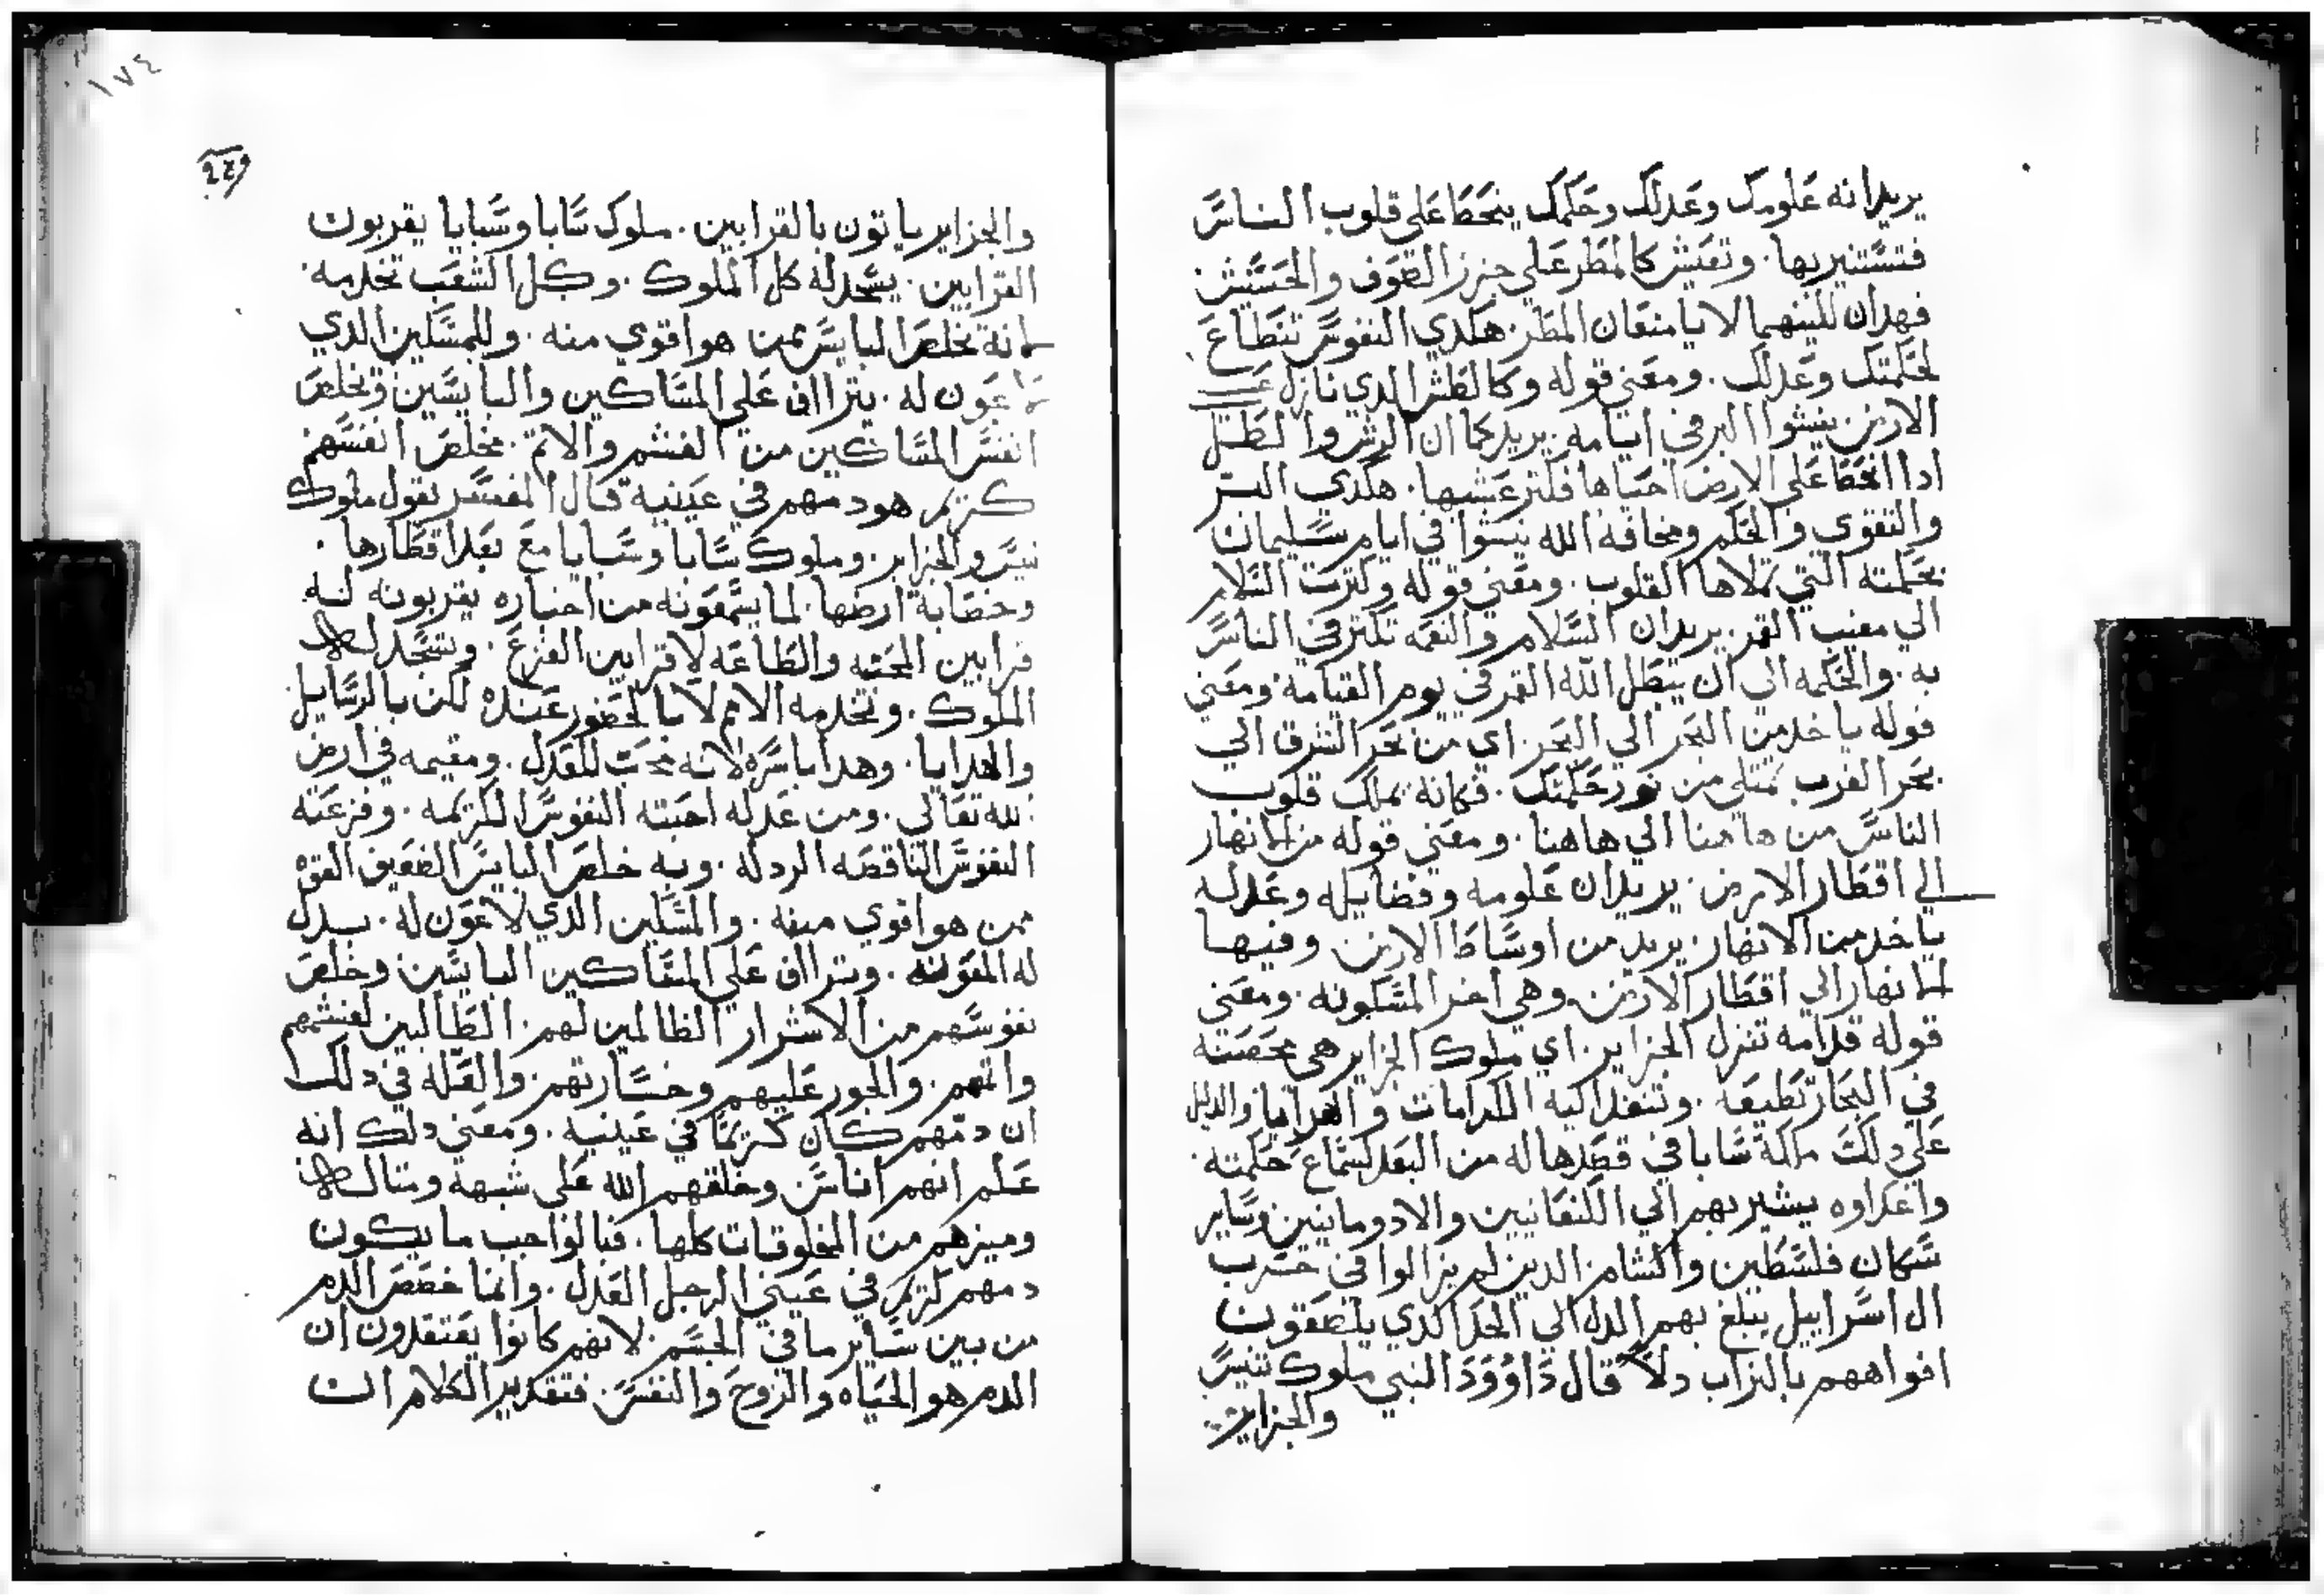 يريد انه علومك وعدلك وحكمك ينحط على قلوب الناس
فتستنير بها. وتعيش كالمطر على جزز الصوف والحشيش
فهدان للينهما لا يامنعان المطر. هكدي النفوس تنطاع
لحكمتك وعدلك. ومعني قوله وكالطش الدي نازل علي
الارض ينشوا البر في ايامه. يريد كما ان الرش والطل
ادا انحط على الارض احياها فكتر عشبها. هكدي البر
والتقوي والحكم ومخافة الله ينشوا في ايام سليمان
بحكمته التي تملاها القلوب. ومعني قوله وكترت السلام
الي مغيب القمر. يريد ان السلام والنعمه تكتر في الناس
به. والحكمه الي ان يبطل الله القمر في يوم القيامه. ومعني
قوله ياخد من البحر الي البحر. اي من بحر الشرق الي
بحر الغرب تمتلي من نور حكمتك. فكانه يملك قلوب
الناس من هاهنا الي هاهنا. ومعني قوله من الانهار
الي اقطار الارض. يريد ان علومه وفضايله وعدله
ياخد من الانهار. يريد من اوساط الارض وفيها
الانهار الي اقطار الارض. وهي اخر المسكونه. ومعني
قوله قدامه تنزل الجزاير. اي ملوك الجزاير هي محصنه
في البحار تطيعه. وتنفد اليه الكرامات والهدايا والدليل
علي دلك ملكة سابا في قصدها له من البعد لسماع حكمته.
واعداوه يشير بهم الي الكنعانيين والادومانيين وساير
سكان فلسطين والشام. الدين لم يزالوا في حرب
ال اسراييل يبلغ بهم الدل الي الحد الدي يلصقون
افواههم بالتراب دلا قال داوود النبي ملوك ترسيس
والجزاير
١٧٤
والجزاير ياتون بالقرابين. ملوك سابا وسبايا يقربون
القرابين. يسجد له كل الملوك. وكل الشعب تخدمه.
لانه تخلص البايس ممن هو اقوي منه. وللمسكين الدي
لا عون له. يتراف علي المساكين والبايسين وتخلص
انفس المساكين من الغشم والاتم. تخلص انفسهم
كريم هو دمهم في عينيه قال المفسر يقول ملوك
ترسيس والجزاير. وملوك سابا وسبايا مع بعد اقطارها.
وخصابة ارضها. لما يسمعونه من اخباره يقربونه له
قرابين المحبه والطاعه لا قرابين الفزع. وتسجد له
الملوك. وتخدمه الامم لا بالحضور عنده لكن بالرسايل
والهدايا. وهدا باسره لانه محب للعدل. ومقيمه في ارض
الله تعالي. ومن عدله احبته النفوس الكريمه. وفزعته
النفوس الناقصه الردله. وبه خلص البايس الضعيف القوه
ممن هو اقوي منه. والمسكين الدي لا عون له. يبدل
له المعونه. ويتراف علي المساكين البايسين وخلص
نفوسهم من الاشرار الظالمين لهم. الطالبين لغشمهم
واتهم. والجور عليهم وخسارتهم. والعله في دلك
ان دمهم كان كريما في عينيه. ومعني دلك انه
علم انهم اناس. وخلقهم الله علي شبهه ومتاله
وميزهم من المخلوقات كلها. فبالواجب ما يكون
دمهم كريم في عيني الرجل العدل. وانما خصص الدم
من بين ساير ما في الجسم. لانهم كانوا يعتقدون ان
الدم هو الحياه والروح والنفس. فتقدير الكلام ان